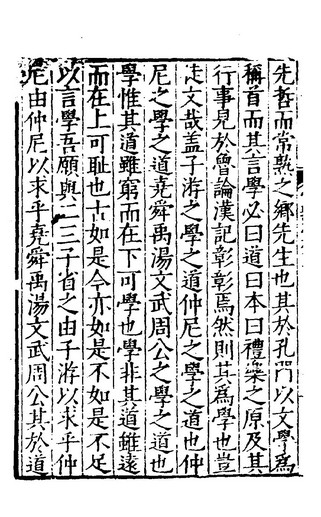 先哲而常熟之鄉先生也其於孔門以文學爲
稱首而其言學必曰道曰本曰禮樂之原及其
行事見於魯論漢記彰彰焉然則其爲學也豈
徒文哉蓋子游之學之道仲尼之學之道也仲
尼之學之道堯舜禹湯文武周公之學之道也
學惟其道雖窮而在下可學也學非其道雖遠
而在上可耻也古如是今亦如是不如是不足
以言學吾願與二三子省之由子游以求乎仲
尼由仲尼以求乎堯舜禹湯文武周公其於道